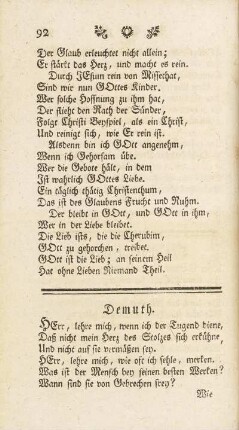 92
Der Glaub erleuchtet nicht allein;
Er stärkt das Herz, und macht es rein.
Durch JEsum rein von Missethat,
Sind wir nun GOttes Kinder.
Wer solche Hoffnung zu ihm hat,
Der flieht den Rath der Sünder,
Folgt Christi Beyspiel, als ein Christ,
Und reinigt sich, wie Er rein ist.
Alsdenn bin ich GOtt angenehm,
Wenn ich Gehorsam übe.
Wer die Gebote hält, in dem
Ist wahrlich GOttes Liebe.
Ein täglich thätig Christenthum,
Das ist des Glaubens Frucht und Ruhm.
Der bleibt in GOtt, und GOtt in ihm,
Wer in der Liebe bleibet.
Die Lieb ists, die die Cherubim,
GOtt zu gehorchen, treibet.
GOtt ist die Lieb; an seinem Heil
Hat ohne Lieben Niemand Theil.
Demuth.
HErr, lehre mich, wenn ich der Tugend diene,
Daß nicht mein Herz des Stolzes sich erkühne,
Und nicht auf sie vermäßen sey.
HErr, lehre mich, wie oft ich fehle, merken.
Was ist der Mensch bey seinen besten Werken?
Wann sind sie von Gebrechen frey?
Wie